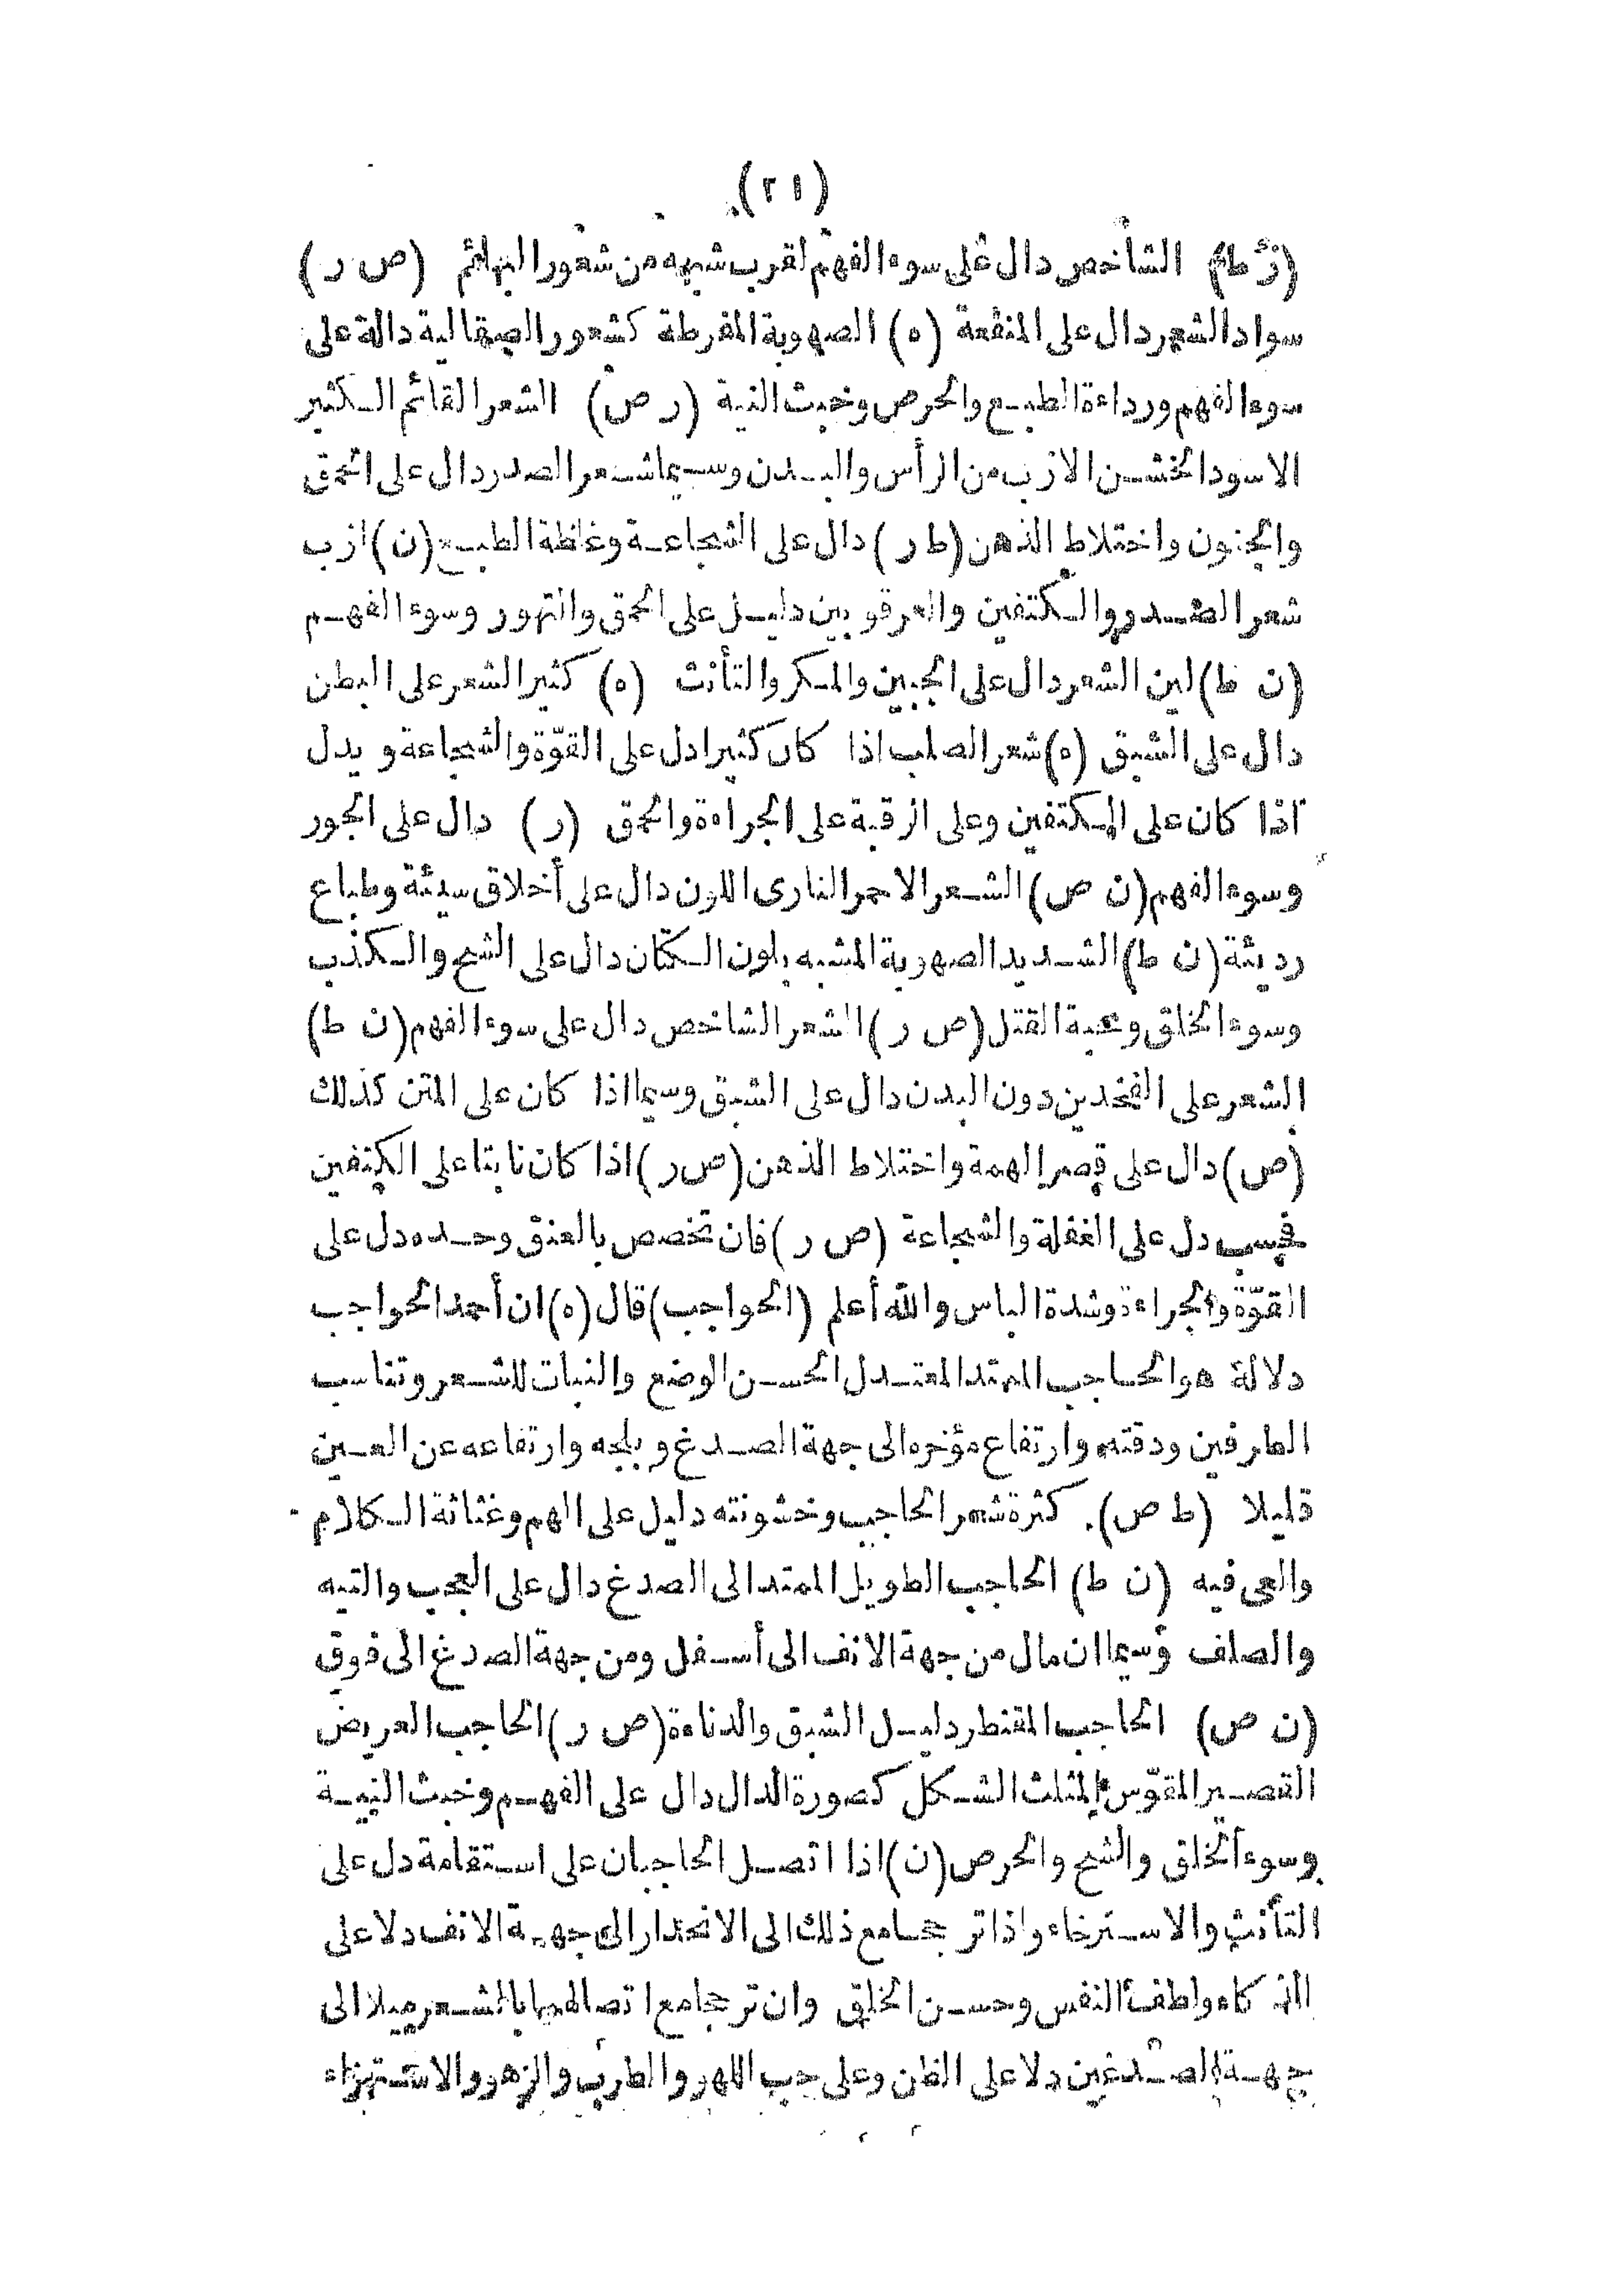 (٢١)
(ر ط) الشاخص دال على سوء الفهم لقرب شبهه من شعور البهائم (ص ر)
سواد الشعر دال على المنفعة (ه) الصهوبة المفرطة كشعور الصقالبة دالة على
سوء الفهم ورداءة الطبع والحرص وخبث النية (ر ص) الشعر القائم الكثير
الاسود الخشن الازب من الرأس والبدن وسيما شعر الصدر دال على الحمق
والجنون واختلاط الذهن (ط ر) دال على الشجاعة وغلظة الطبع (ن) ازب
شعر الصدر والكتفين والعرقوبين دليل على الحمق والتهور وسوء الفهم
(ن ط) لين الشعر دال على الجبين والمكر والتأنث (ه) كثير الشعر على البطن
دال على الشبق (ه) شعر الصلب اذا كان كثيرا دل على القوّة والشجاعة ويدل
اذا كان على الكتفين وعلى الرقبة على الجراءة والحمق (ر) دال على الجور
وسوء الفهم (ن ص) الشعر الاحمر النارى اللون دال على أخلاق سيئة وطباع
رديئة (ن ط) الشديد الصهوبة المشبه بلون الكتان دال على الشح والكذب
وسوء الخلق ومحبة القتل (ص ر) الشعر الشاخص دال على سوء الفهم (ن ط)
الشعر على الفخدين دون البدن دال على الشبق وسيما اذا كان على المتن كذلك
(ص) دال على قصر الهمة واختلاط الذهن (ص ر) اذا كان نابتا على الكتفين
فحسب دل على الغفلة والشجاعة (ص ر) فان تخصص بالعنق وحده دل على
القوّة والجراءة وشدة الباس والله أعلم (الحواجب) قال (ه) ان أحمد الحواجب
دلالة هو الحاجب الممتد المعتدل الحسن الوضع والنبات للشعر وتناسب
الطرفين ودقته وارتفاع مؤخره الى جهة الصدغ وبلجه وارتفاعه عن العين
قليلا (ط ص) كثرة شعر الحاجب وخشونته دليل على الهم وغثاثة الكلام
والعى فيه (ن ط) الحاجب الطويل الممتد الى الصدغ دال على العجب والتيه
والصلف وسيما ان مال من جهة الانف الى أسفل ومن جهة الصدغ الى فوق
(ن ص) الحاجب المقنطر دليل الشبق والدناءة (ص ر) الحاجب العريض
القصير المقوّس المثلث الشكل كصورة الدال دال على الفهم وخبث النية
وسوء الخلق والشح والحرص (ن) اذا اتصل الحاجبان على استقامة دل على
التأنث والاسترخاء واذا ترججا مع ذلك الى الانحدار الى جهة الانف دلا على
الذكاء ولطف النفس وحسن الخلق وان ترججا مع اتصالهما بالشعر ميلا الى
جهة الصدغين دلا على الظن وعلى حب اللهو والطرب والزهو والاستهزاء